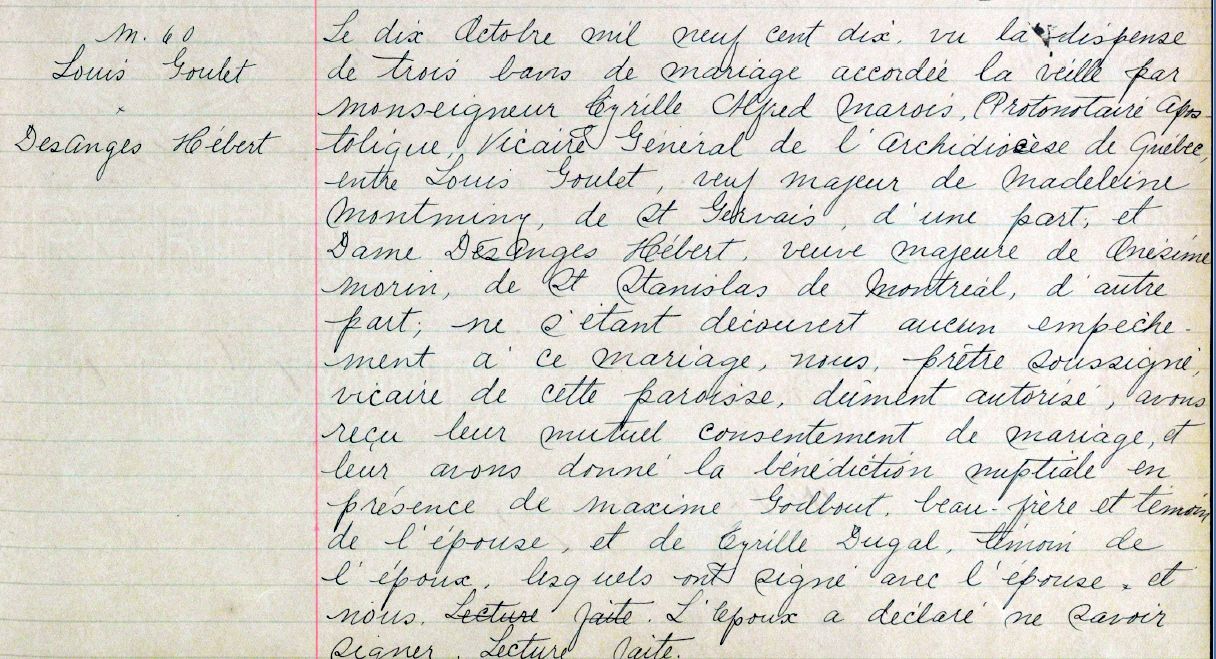 M. 60
Louis Goulet
Desanges Hébert
Le dix Octobre mil neuf cent dix, vu la dispense
de trois bans de mariage accordée la veille par
Monseigneur Cyrille Alfred Marois, Protonotaire Apos-
tolique, Vicaire Général de l'Archidiocèse de Québec,
entre Louis Goulet, veuf majeur de Madeleine
Montminy, de St Gervais, d'une part, et
Dame DesAnges Hébert, veuve majeure de Onésime
Morin, de St Stanislas de Montréal, d'autre
part; ne s'étant découvert aucun empêche-
ment à ce mariage, nous, prêtre soussigné,
vicaire de cette paroisse, dûment autorisé, avons
reçu leur mutuel consentement de mariage, et
leur avons donné la bénédiction nuptiale en
présence de Maxime Godbout, beau-frère et témoin
de l'épouse, et de Cyrille Dugal, témoin de
l'époux, lesquels ont signé avec l'épouse et
nous. Lecture faite. L'époux a déclaré ne savoir
signer. Lecture faite.